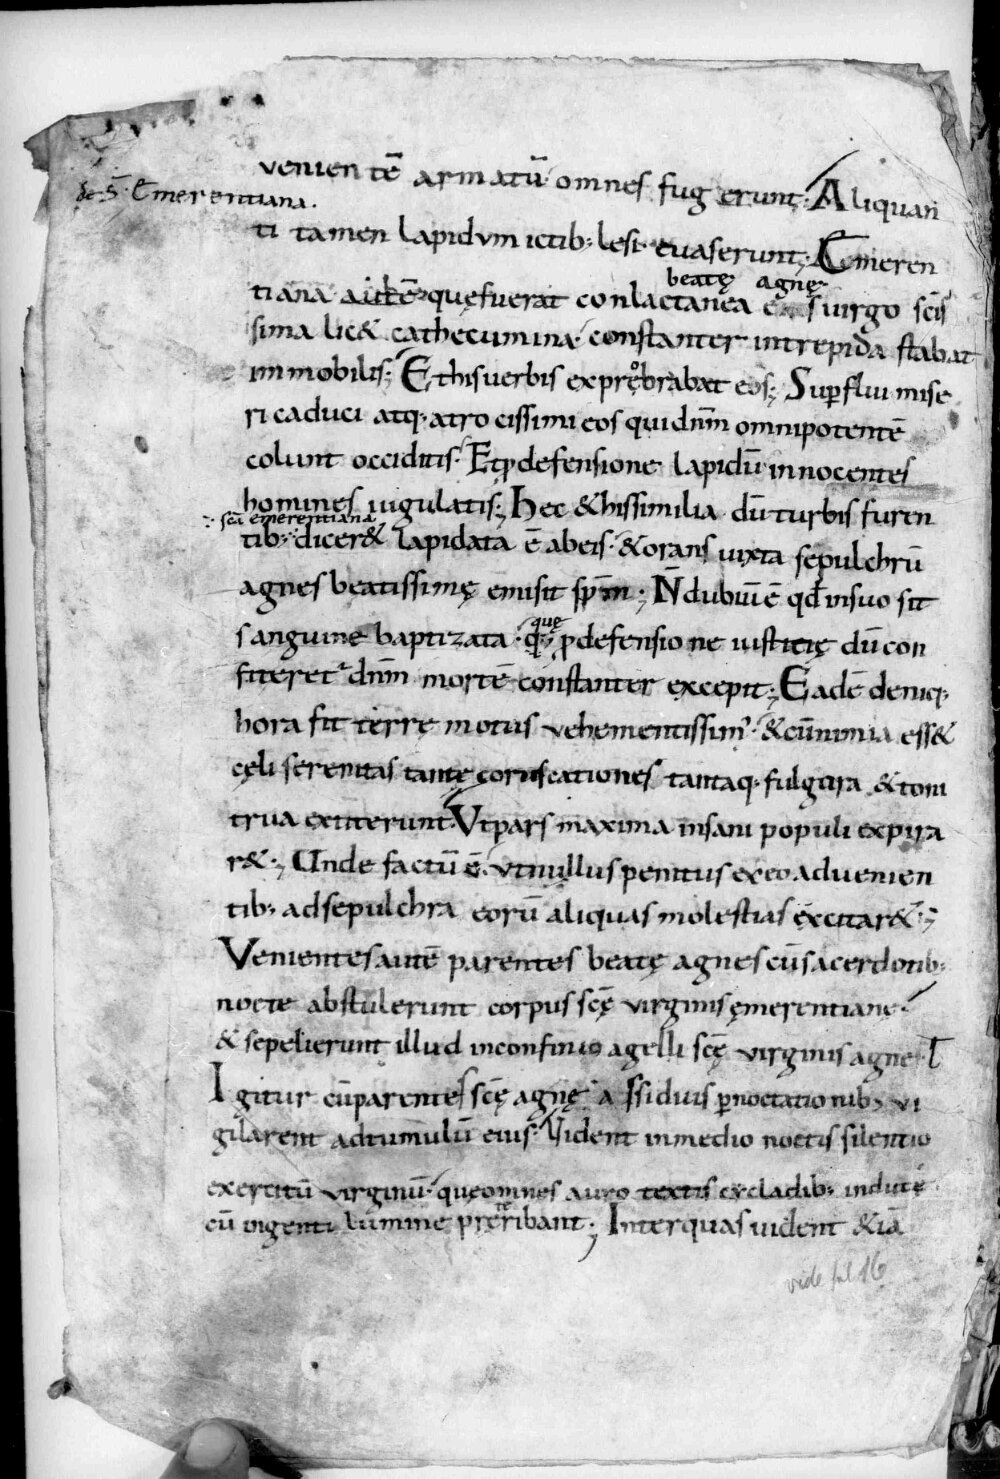 venientē armatū omnes fugerunt. Aliquan
de S̄. Emerentiana.
ti tamen lapidum ictib; lesi euaserunt; Emeren
beatę agnę
tiana autē quę fuerat conlactanea eius uirgo scīs
sima lic& cathecumina constanter intrepida stabat
immobilis; Et his uerbis exprobrabat eos; Supflui mise
ri caduci atq; atrocissimi eos qui dnm̄ omnipotentē
colunt occiditis. Et ꝓ defensione lapidū innocentes
homines iugulatis; Hec & his similia dū turbis furen
scā emerentiana
tib; dicer& lapidata ē ab eis. & orans iuxta sepulchrū
agnes beatissimę emisit spm̄; N̄ dubiū ē qđ in suo sit
quę
sanguine baptizata. q; ꝓ defensione iusticię dū con
fiteret᷑ dnm̄ mortē constanter excepit; Eadē deniq;
hora fit terrę motus vehementissim᾽. & cū nimia ess&
cęli serenitas tantę coruscationes tantaq; fulgura & toni
trua extiterunt. Ut pars maxima insani populi expira
r&; Unde factū ē. ut nullus penitus ex eo aduenien
tib; ad sepulchra eorū aliquas molestias excitar&;
Venientes autē parentes beatę agnes cū sacerdotib;
nocte abstulerunt corpus scę̄ virginis ęmerentianę.
& sepelierunt illud in confinio agelli scę̄ virginis agnę. I
Igitur cū parentes scę̄ agnę assiduis ꝑnoctationib; vi
gilarent ad tumulū eius. Uident in medio noctis silentio
exercitū virginū. quę omnes auro textis cycladib; indutę
cū ingenti lumine pręteribant; Inter quas uident & iā
vide fol 16